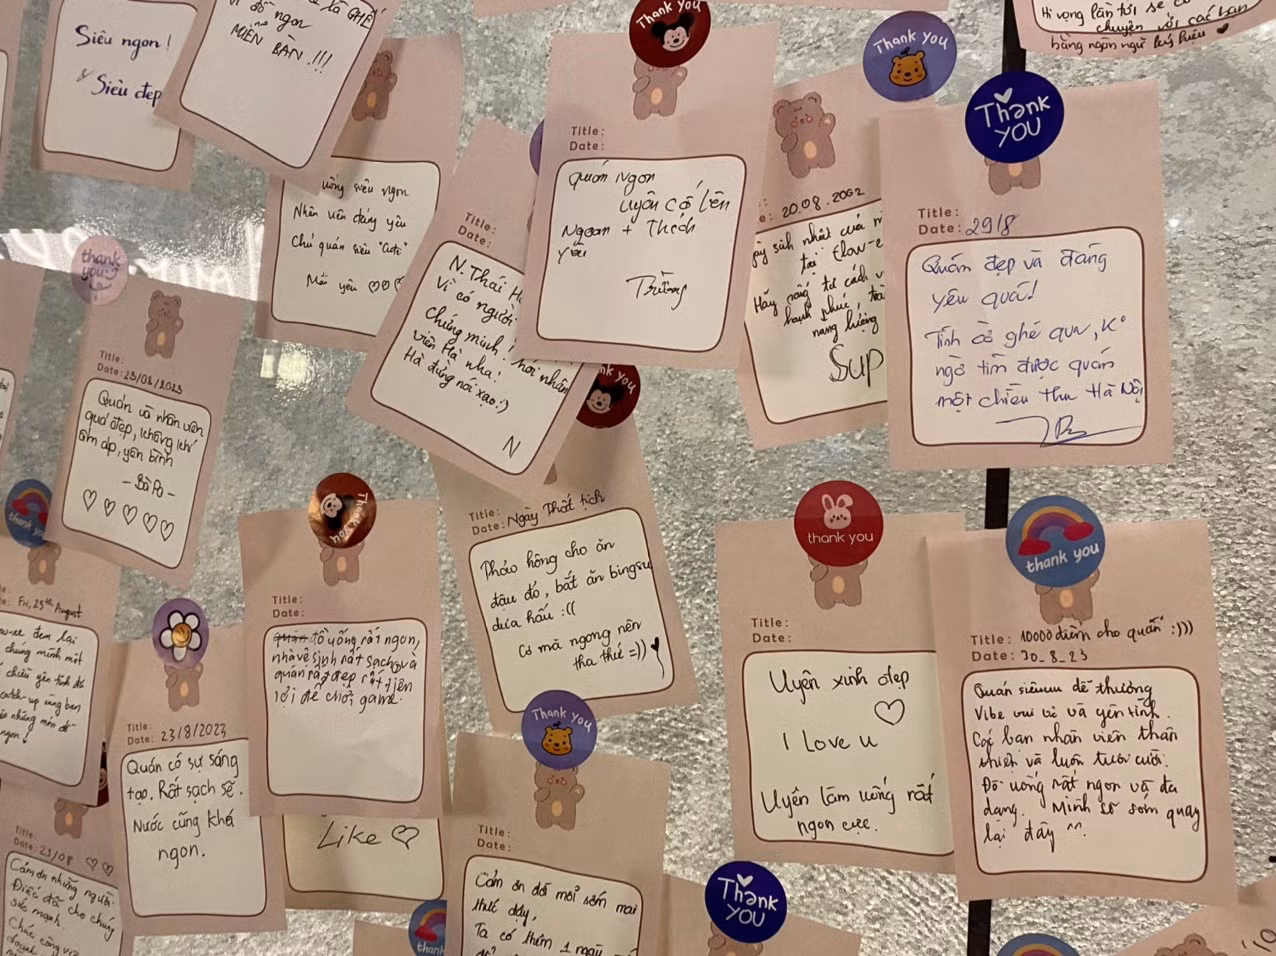 Siêu ngon!
Siêu đẹp
MIỄN BÀN.!!!
Thank you
Thank you
Thank you
bằng ngôn ngữ ký hiệu
siêu ngon
Nhân viên đáng yêu
Chủ quán siêu "cute"
Mãi yêu
Title:
Date:
N. Thái H
Vì có người
Chứng minh!
viên Hà nha!
Hà đừng nói xạo:)
N
Title:
Date:
Quán Ngon
Uyên cố lên
Ngoan + Thích
yêu
20.08.2002
sinh nhật của m
tại Elav-e
Hãy sống tử cách v
hạnh phúc,
năng lượng
SUP
Title:
Date: 29/8
Quán đẹp và đáng
yêu quá!
Tình cờ ghé qua, ko
ngờ tìm được quán
một chiều thu Hà Nội
thank
you
Title:
Date: 23/08/2023
Quán và nhân viên
quá đẹp, không khí
ấm áp, yên bình
Thank you
thank you
Fri, 25th August
đem lại
chung mình một
chiều yên tĩnh để
catch-up cùng bạn
những món đồ
ngon
Thank you
Title:
Date:
đồ uống rất ngon,
nhà vệ sinh rất sạch và
quán rất đẹp rất tiện
lợi để chơi game.
Title:
Date: Ngày Thất tịch
Thảo hông cho ăn
dâu đỏ, bắt ăn bingsu
dưa hấu :((
Cơ mà ngong nên
tha thứ =))
thank you
Title:
Date:
Uyên xinh đẹp
I Love u
Uyên làm uống rất
ngon cực.
thank you
Title: 10000 điểm cho quán :)))
Date: 30_8_23
Quán siêuuu dễ thương
Vibe vui vẻ và yên tĩnh.
Các bạn nhân viên thân
thiện và luôn tươi cười.
Đồ uống rất ngon và đa
dạng. Mình sẽ sớm quay
lại đây ^^
Title:
Date: 23/8/2023
Quán có sự sáng
tạo. Rất sạch sẽ.
Nước cũng khá
ngon.
Like
Thank you
Title:
Date:
Cảm ơn đời mỗi sớm mai
thức dậy,
Ta có thêm 1 ngày
Title:
Date: 23/08
Cảm ơn những người
Điếc đã cho chúng
sức mạnh.
Chúc công việ
Thank
you
thank